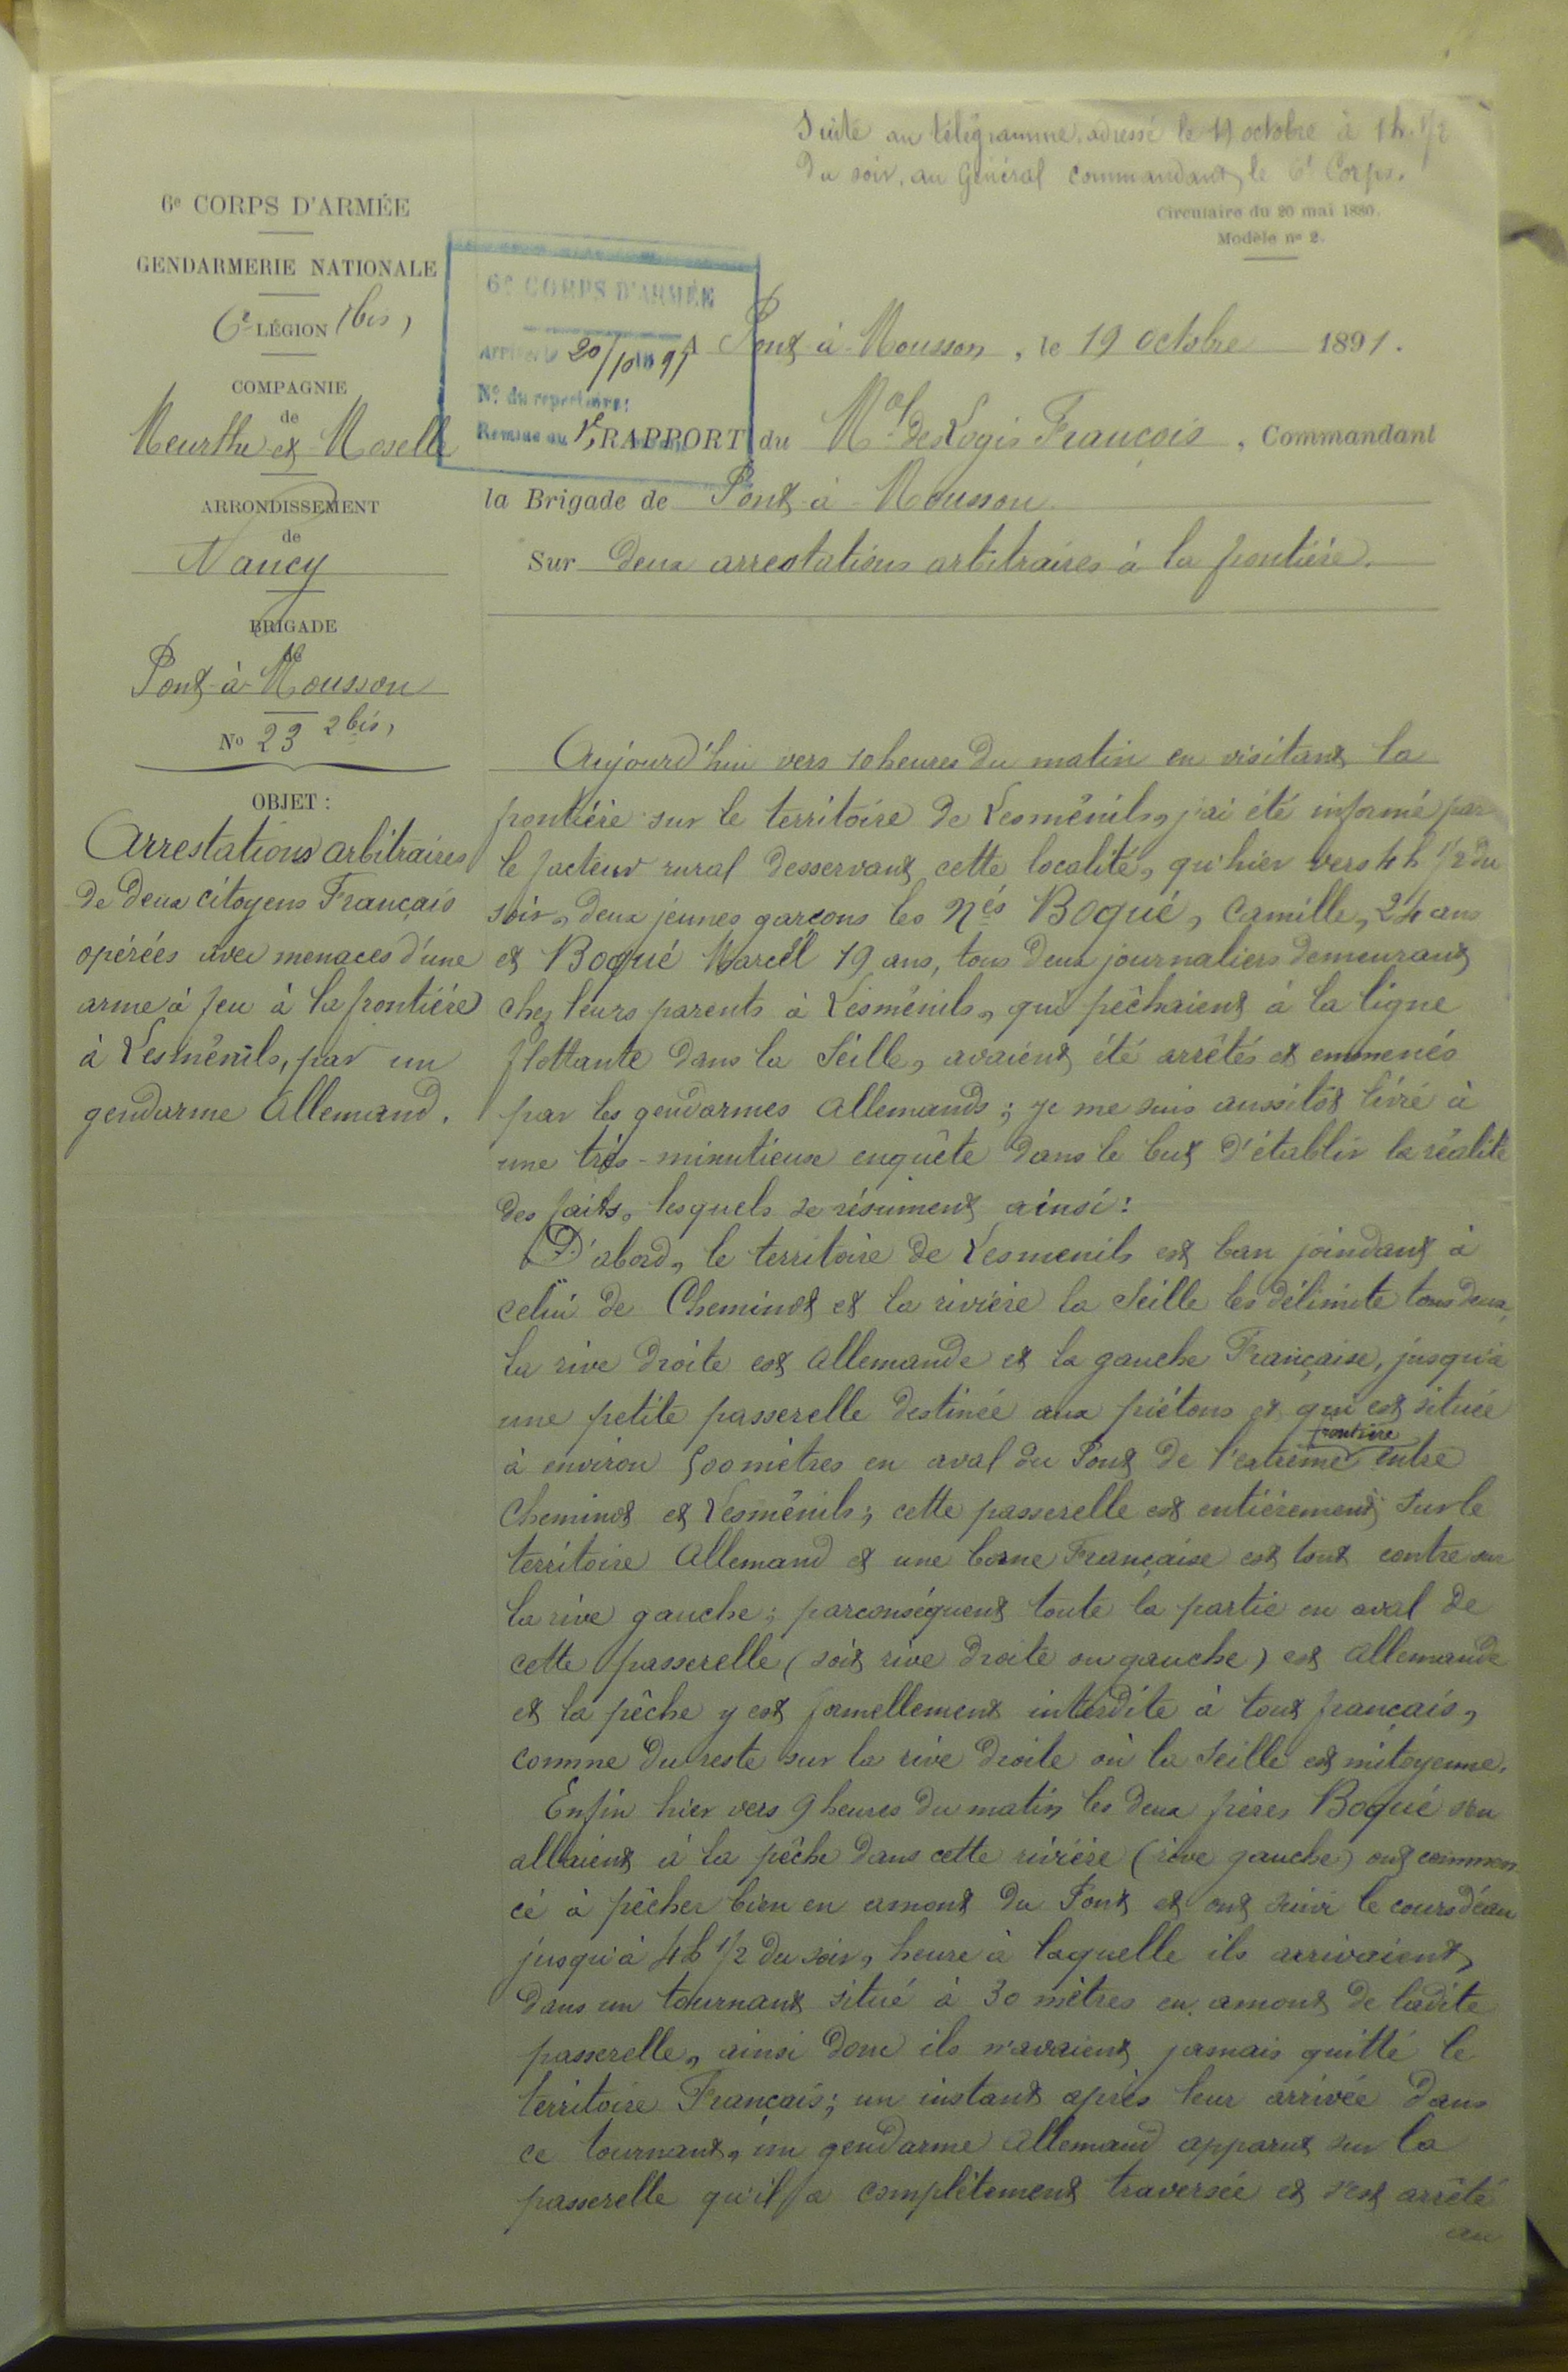 Suite au télégramme, adressé le 19 octobre à 1 h. 1/2
du soir, au Général commandant le 6e Corps.
Circulaire du 20 mai 1880.
Modèle no 2.
6e CORPS D'ARMÉE
GENDARMERIE NATIONALE
6e LÉGION (bis)
COMPAGNIE
de
Meurthe et Moselle
ARRONDISSEMENT
de
Nancy
BRIGADE
de
Pont-à-Mousson
No 23 2bis,
OBJET :
Arrestations arbitraires
de deux citoyens Français
opérées avec menaces d'une
arme à feu à la frontière
à Lesménils, par un
gendarme Allemand.
6e CORPS D'ARMÉE
Arrivée le 20/10 1891
No du repertoire:
Remise au
A Pont-à-Mousson, le 19 octobre 1891.
RAPPORT du Mal des Logis François, Commandant
la Brigade de Pont-à-Mousson
Sur deux arrestations arbitraires à la frontière.
Aujourd'hui vers 10 heures du matin en visitant la
frontière sur le territoire de Lesménils, j'ai été informé par
le facteur rural desservant cette localité, qu'hier vers 4 h 1/2 du
soir, deux jeunes garçons les nés Boqué, Camille, 24 ans
et Boqué Marcel 19 ans, tous deux journaliers demeurant
chez leurs parents à Lesménils, qui pêchaient à la ligne
flottante dans la Seille, avaient été arrêtés et emmenés
par les gendarmes Allemands ; je me suis aussitôt livré à
une très-minutieuse enquête dans le but d'établir la réalité
des faits, lesquels se résument ainsi :
D'abord, le territoire de Lesmenils est ban joindant à
celui de Cheminot et la rivière la Seille les délimite tous deux,
la rive droite est Allemande et la gauche Française, jusqu'à
une petite passerelle destinée aux piétons et qui est située
à environ 500 mètres en aval du Pont de l'extrême frontière entre
Cheminot et Lesménils ; cette passerelle est entièrement sur le
territoire Allemand et une borne Française est tout contre sur
la rive gauche ; parconséquent toute la partie en aval de
cette passerelle (soit rive droite ou gauche) est Allemande
et la pêche y est formellement interdite à tout français,
comme du reste sur la rive droite où la Seille est mitoyenne.
Enfin hier vers 9 heures du matin les deux frères Boqué s'en
allaient à la pêche dans cette rivière (rive gauche) ont commen-
cé à pêcher bien en amont du Pont et ont suivi le cours d'eau
jusqu'à 4 h 1/2 du soir, heure à laquelle ils arrivaient,
dans un tournant situé à 30 mètres en amont de ladite
passerelle, ainsi donc ils n'avaient jamais quitté le
territoire Français ; un instant après leur arrivée dans
ce tournant, un gendarme Allemand apparut sur la
passerelle qu'il a complètement traversée et s'est arrêté
au